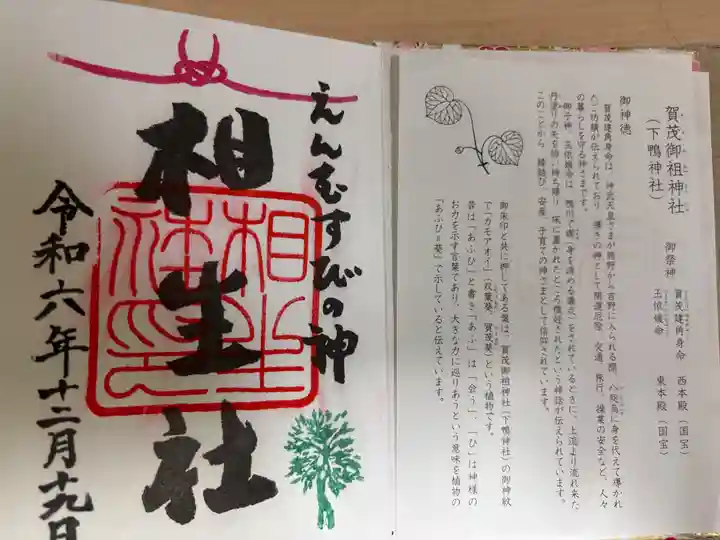 えんむすびの神
相生社
令和六年十二月十九日
賀茂御祖神社
(下鴨神社)
御祭神
賀茂建角身命 西本殿(国宝)
玉依媛命 東本殿(国宝)
御神徳
賀茂建角身命は、神武天皇さまが熊野から吉野に入られる際、八咫烏に身を代えて導かれ
たご功績が伝えられており、導きの神として開運厄除、交通、旅行、操業の安全など、人々
の暮らしを守る神さまです。
御子神、玉依媛命は、鴨川で禊(身を清める儀式)をされているときに、上流より流れ来た
丹塗りの矢を拾い持ち帰り、床に置かれたところ懐妊されたという神話が伝えられています。
このことから、縁結び、安産、子育ての神さまとして信仰されています。
御朱印と共に押してある葉は、賀茂御祖神社(下鴨神社)の御神紋
で「カモアオイ」(双葉葵、賀茂葵)という植物です。
昔は「あふひ」と書き「あふ」は「会う」、「ひ」は神様の
お力を示す言葉であり、大きな力に巡りあうという意味を植物の
「あふひ=葵」で示していると伝えています。